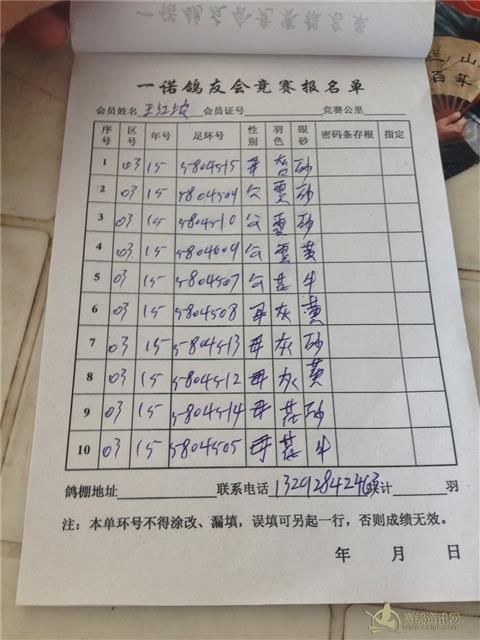 一诺鸽友会竞赛报名单
会员姓名 王红 会员证号 竞赛公里
序号 区号 年号 足环号 性别 羽色 眼砂 密码条存根 指定
1 03 15 5804515 母 砂
2 03 15 5804504 公 雨 砂
3 03 15 5804510 公 雨 砂
4 03 15 5804609 公 雨 黄
5 03 15 5804507 公 花 牛
6 03 15 5804508 母 灰 黄
7 03 15 5804513 母 灰 砂
8 03 15 5804512 母 灰 黄
9 03 15 5804514 母 花 砂
10 03 15 5804505 母 花 牛
鸽棚地址 联系电话 13292842463 共计 羽
注：本单环号不得涂改、漏填，误填可另起一行，否则成绩无效。
年 月 日
栏山
百年
赛鸽资讯网